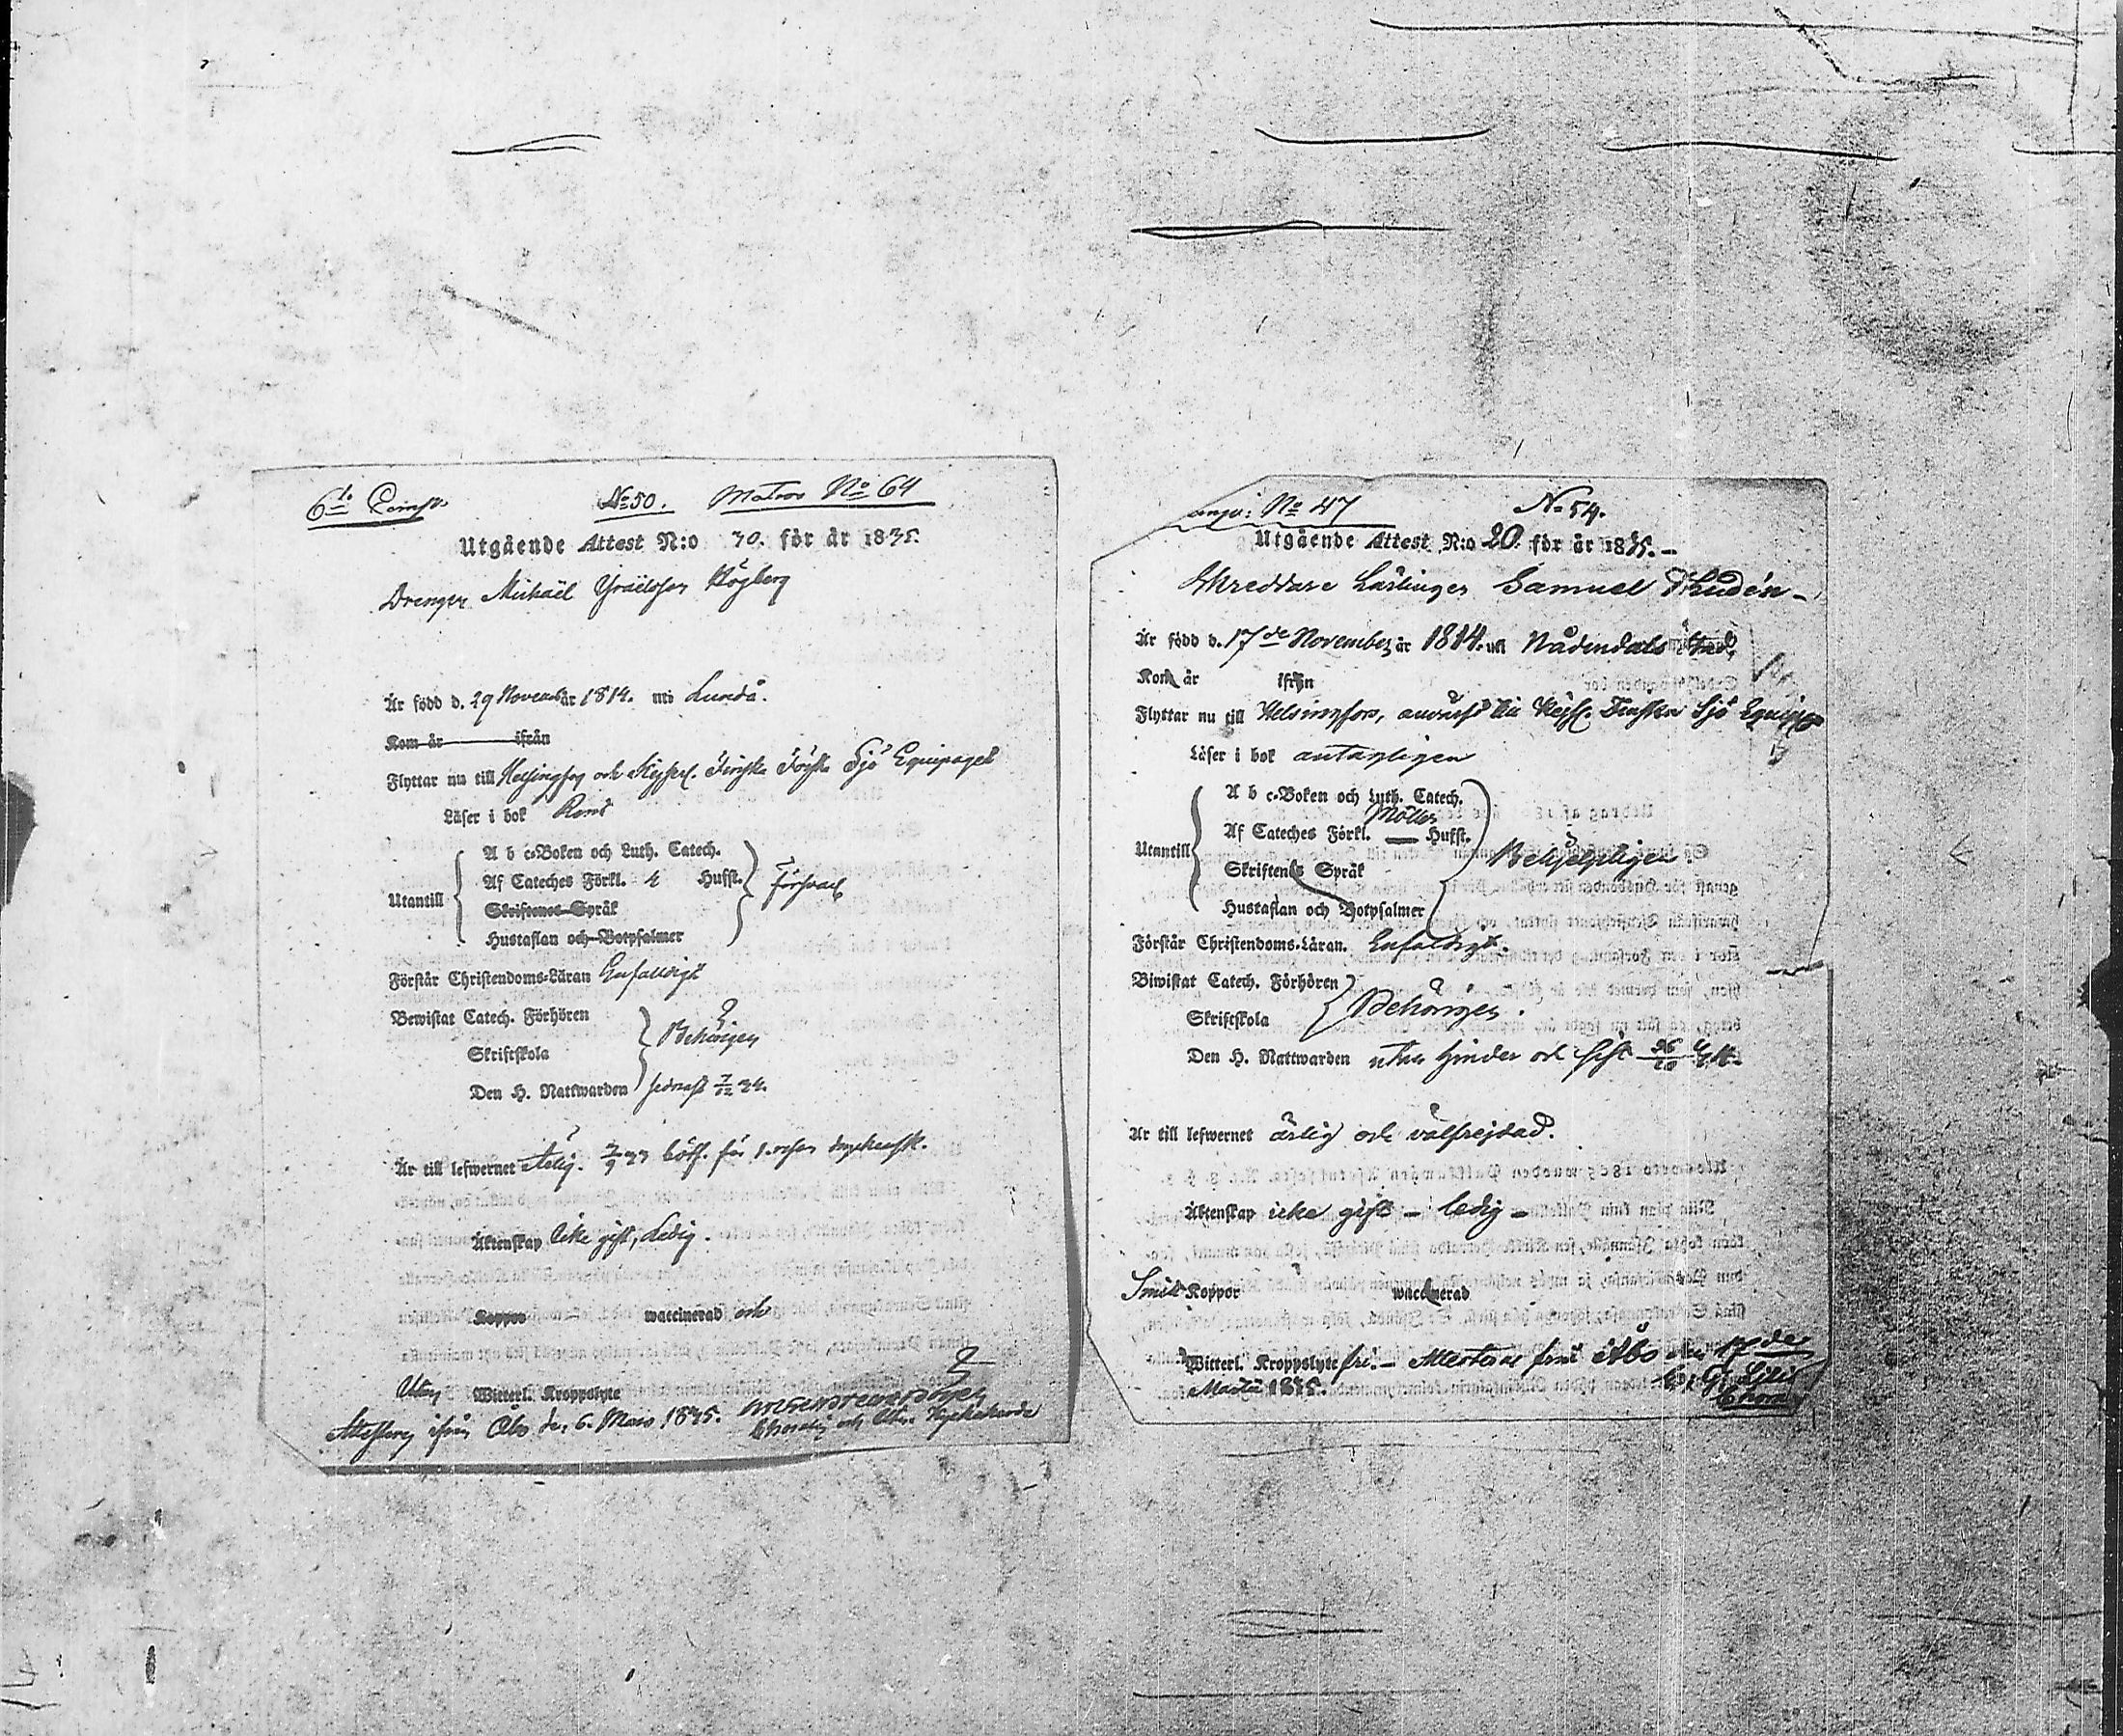 6te Comp. №50. Matros No 64
Utgående Attest N:o 30. för år 1835.
Drengen Michaël Israelsson Högberg
Är född d. 29 November år 1814. uti Lundå.
Kom år ifrån
Flyttar nu till Helsingfors och Kejserl. Finska Sjö Equipaget
Läser i bok Rent
Utantill
A b c-Boken och Luth. Catech.
Af Cateches Förkl. 4 Hufst.
Skriftenes Språk
Hustaflan och Botpsalmer
Försvarl.
Förstår Christendoms-Läran Enfaldigt
Bewistat Catech. Förhören
Skriftskola
Den H. Nattwarden
Behörigen
sednast 7/12 34.
Är till lefwernet
Äktenskap Icke gift, Ledig.
Koppor waccinerad och
Utan Witterl. Kroppslyte
Attesteras ifrån Åbo den 6. Mars 1835.
No 47 N. 54.
Utgående Attest N:o 20. för år 1835.-
Skreddare Lärlingen Samuel Thudén-
Är född d. 17de November år 1814. uti Nådendals Stad,
Kom år ifrån
Flyttar nu till Helsingfors, antagen till Kejs. Finska Sjö Equipaget
Läser i bok antagligen
Utantill
A b c-Boken och Luth. Catech.
Möllers
Af Cateches Förkl. — Hufst.
Skriftenes Språk
Hustaflan och Botpsalmer
Behjelpligen
Förstår Christendoms-Läran. Enfaldigt.
Biwistat Catech. Förhören
Skriftskola
Behörigen.
Den H. Nattwarden utan hinder och sist 26/10
Är till lefwernet ärlig och välfrejdad.
Äktenskap icke gift - ledig -
Smitt Koppor waccinerad
Witterl. Kroppslyte fri. - Attesteras från Åbo den 17de
Martii 1835.